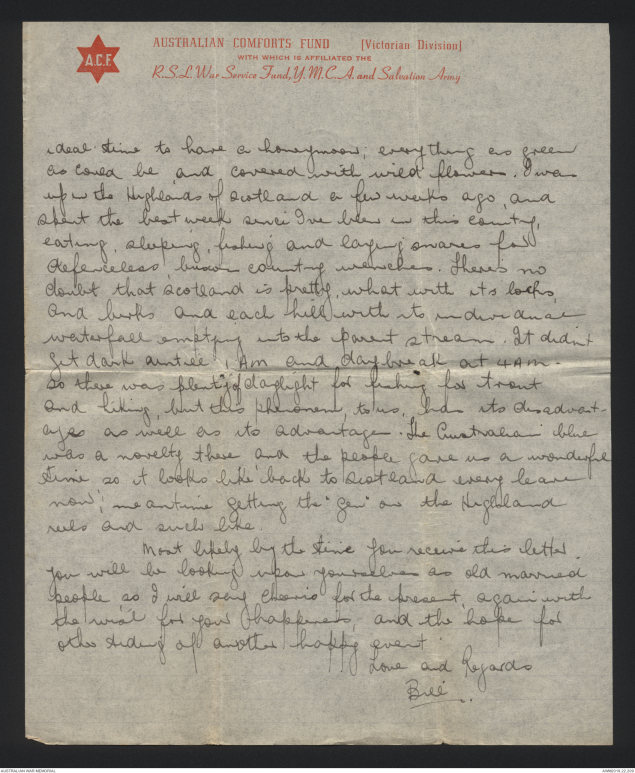 A.C.F.
AUSTRALIAN COMFORTS FUND (Victorian Division)
WITH WHICH IS AFFILIATED THE
R.S.L. War Service Fund, Y.M.C.A. and Salvation Army
ideal time to have a honeymoon; everything as green
as could be and covered with wild flowers. I was
up in the Highlands of Scotland a few weeks ago, and
spent the best week since I've been in this country,
eating, sleeping, fishing and laying snares for
defenceless, buxom country wenches. There's no
doubt that Scotland is pretty, what with its lochs,
and burks and each hill with its individual
waterfall emptying into the parent stream. It didn't
get dark until 1 AM and daybreak at 4 AM -
so there was plenty of daylight for fishing for trout
and hiking, but this phenomena, to us, has its disadvant-
ages as well as its advantage. The Australian blue
was a novelty there and the people gave us a wonderful
time so it looks like back to Scotland every leave
now; meantime getting the "gen" on the Highland
reels and such like.
Most likely by the time you receive this letter
you will be looking upon yourselves as old married
people so I will say cheerio for the present, again with
the wish for your happiness, and the hope for
other tiding of another happy event.
Love and Regards
Bill
AUSTRALIAN WAR MEMORIAL